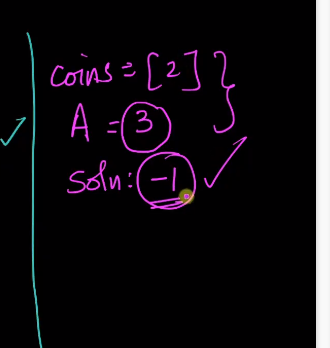 coins = [2]
A = 3
Soln: -1